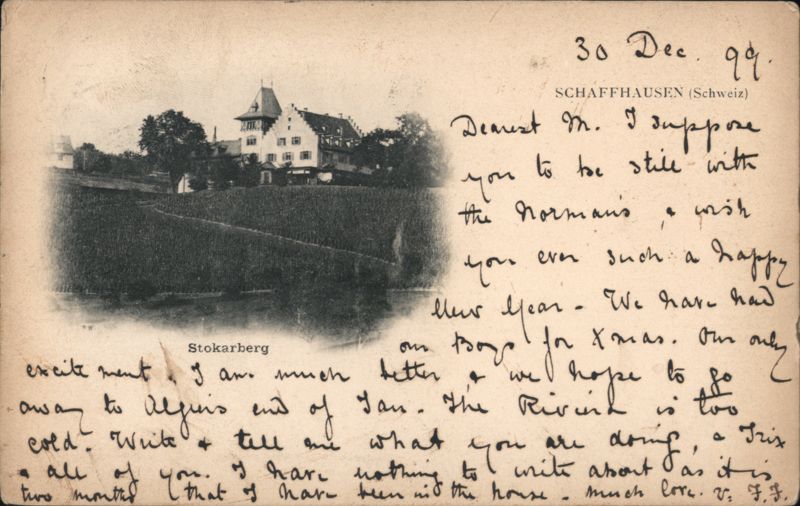 30 Dec. 99.
SCHAFFHAUSEN (Schweiz)
Dearest M. I suppose
you to be still with
the Norman's, & wish
you ever such a happy
New Year - We have had
Stokarberg
our Boys for Xmas. Our only
excitement. I am much better & we hope to go
away to Algiers end of Jan. The Riviera is too
cold. Write & tell me what you are doing, & Trix
& all of you. I have nothing to write about as it is
two months that I have been in the house - much love. V: F.F.